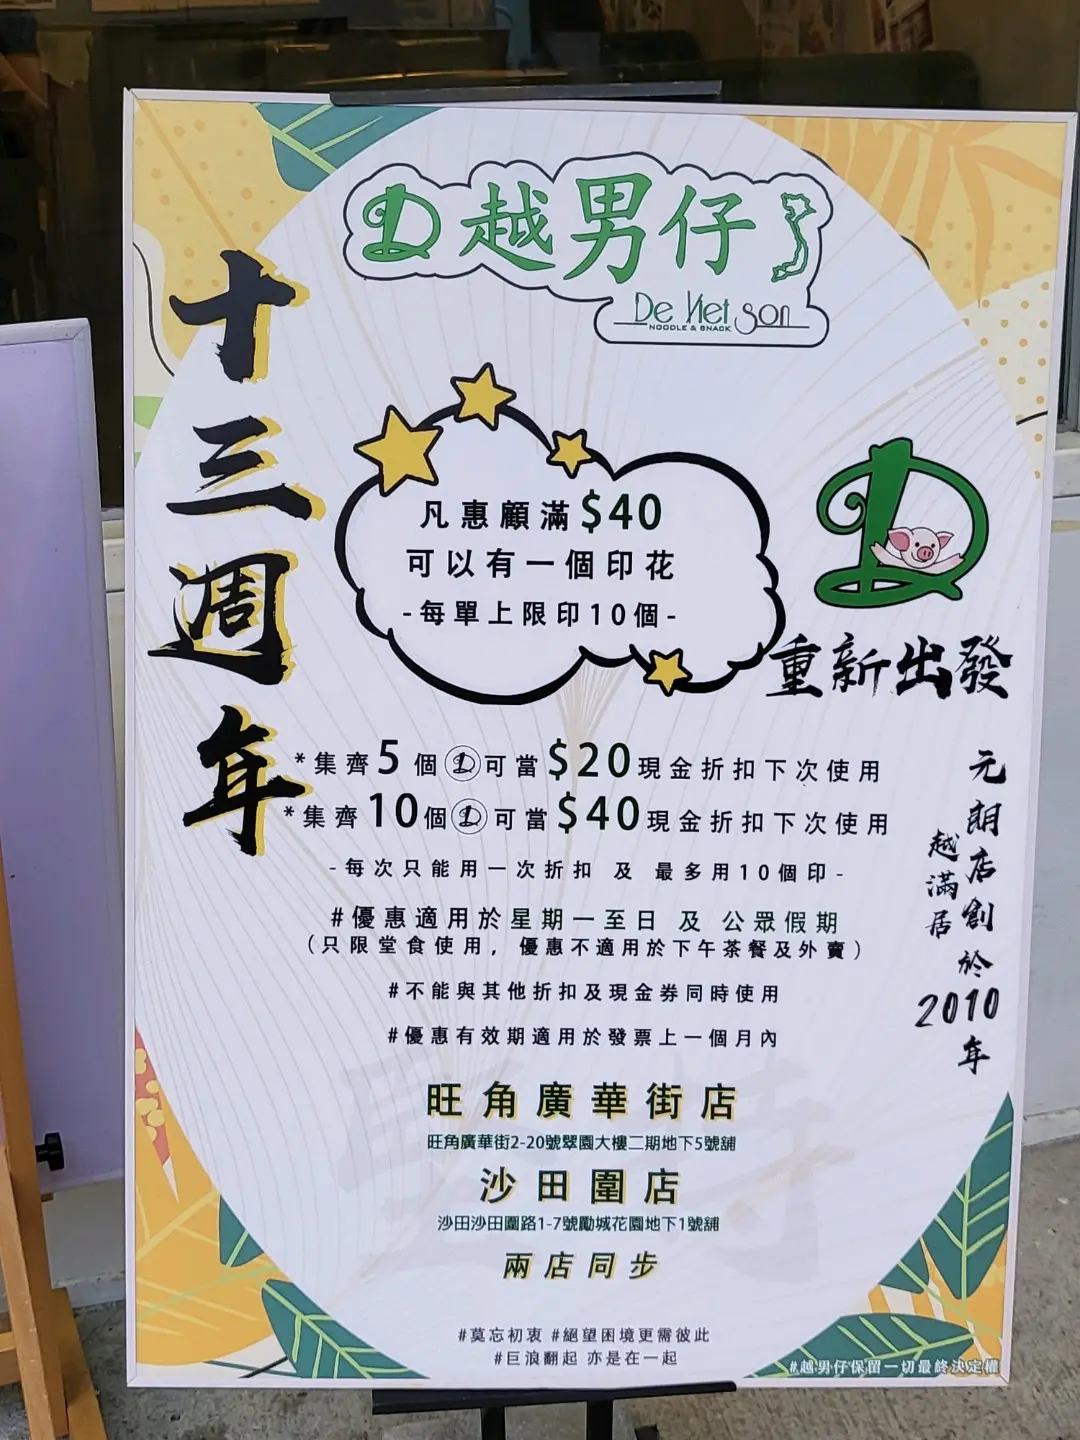 越男仔
De Viet Son
NOODLE & SNACK
十三週年
凡惠顧滿$40
可以有一個印花
-每單上限印10個-
重新出發
*集齊5個D可當$20現金折扣下次使用
*集齊10個D可當$40現金折扣下次使用
-每次只能用一次折扣 及 最多用10個印-
#優惠適用於星期一至日 及 公眾假期
(只限堂食使用, 優惠不適用於下午茶餐及外賣)
#不能與其他折扣及現金券同時使用
#優惠有效期適用於發票上一個月內
元朗店創於2010年
越滿居
旺角廣華街店
旺角廣華街2-20號翠園大樓二期地下5號舖
沙田圍店
沙田沙田圍路1-7號勵城花園地下1號舖
兩店同步
堅持
#莫忘初衷 #絕望困境更需彼此
#巨浪翻起 亦是在一起
#越男仔保留一切最終決定權